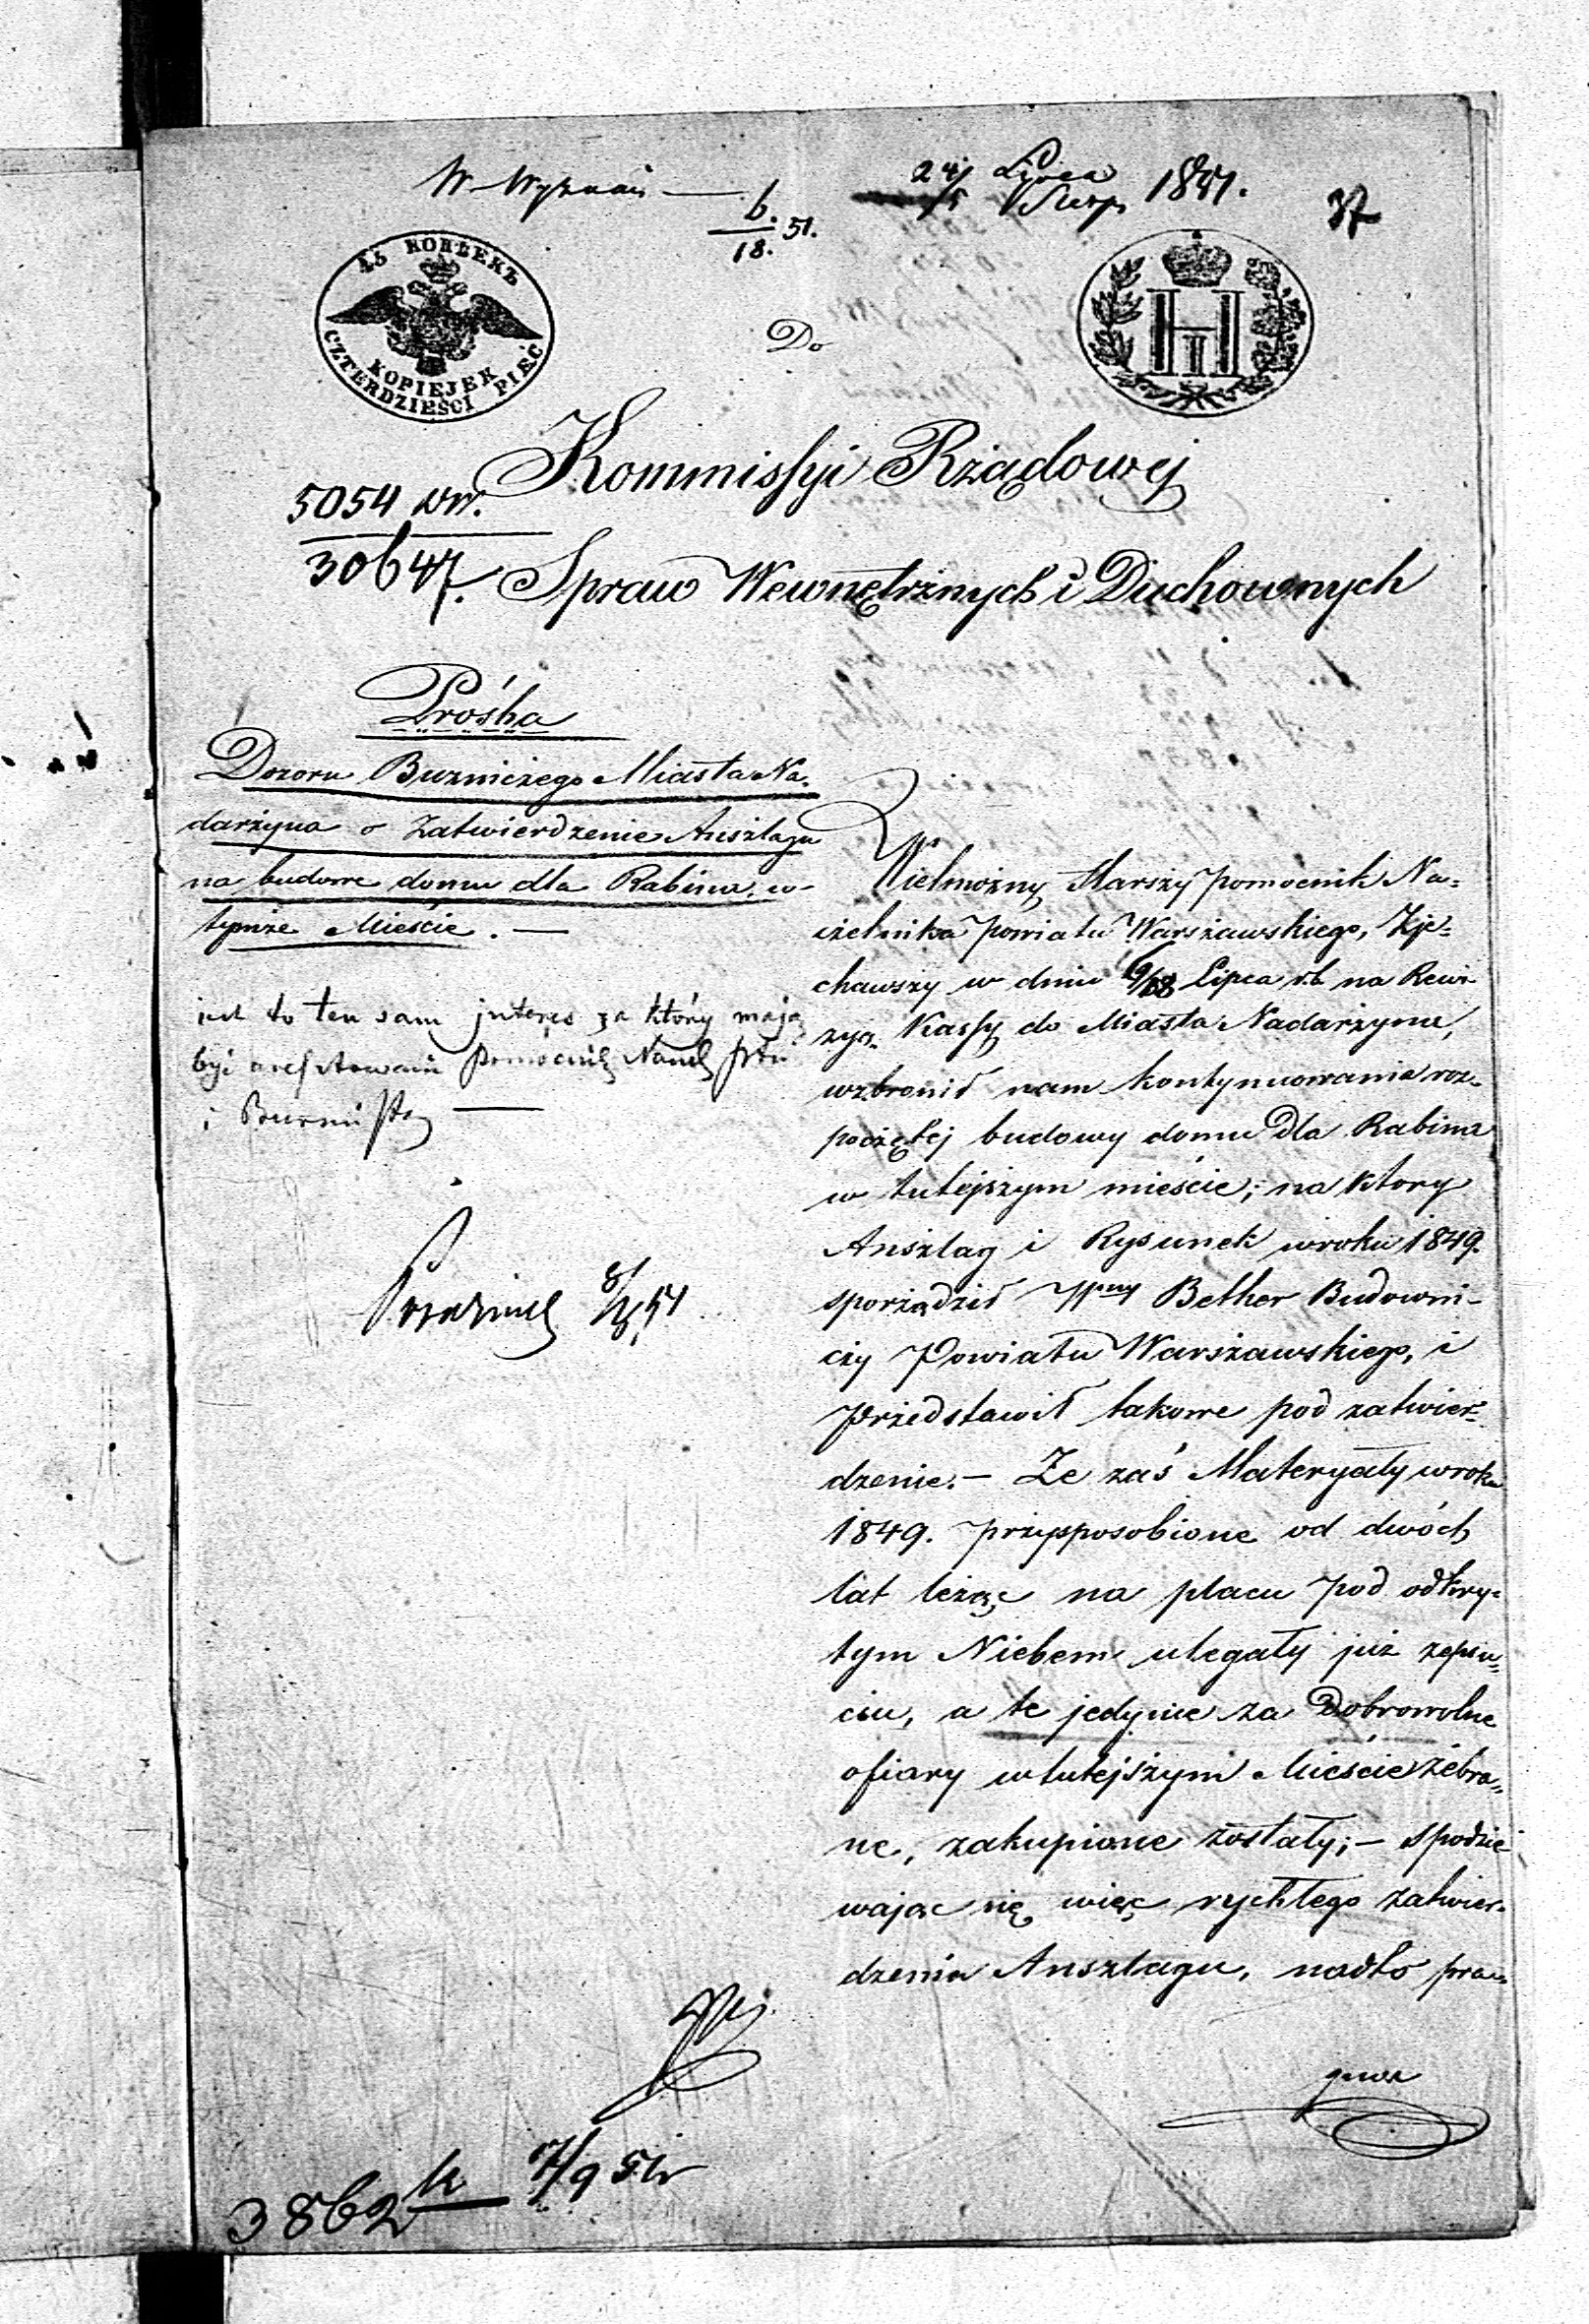 W. Wyznań
6.
18. 51.
24/5 Lipca
Sierp. 1851.
37
45 КОПѢЕКЪ
KOPIEJEK
CZTERDZIEŚCI PIĘĆ
H I
Do
Kommissyi Rządowej
5054 wr.
30647.
Spraw Wewnętrznych i Duchownych
Prośba
Dozoru Bużniczego Miasta Na-
darzyna o Zatwierdzenie Anszlagu
na budowe domu dla Rabina w
tymże Mieście. —
jest to ten sam interes za który mają
być aresztowani Pomocnik Nacz Ptu
i Burmistrz —
8/8 51
Wielmożny Starszy pomocnik Na-
czelnika Powiatu Warszawskiego, Zje-
chawszy w dniu 6/18 Lipca r.b. na Rewi-
zyą Kassy do Miasta Nadarzyna,
wzbronił nam kontynuowania roz-
poczętej budowy domu Dla Rabina
w tutejszym mieście; na ktory
Anszlag i Rysunek w roku 1849.
sporządził Wny Bether Budowni-
czy Powiatu Warszawskiego, i
Przedstawił takowe pod zatwier-
dzenie. — Ze zaś Materyały w roku
1849. przysposobione od dwóch
lat leżąc na placu pod odkry-
tym Niebem ulegały już zepsu-
ciu, a te jedynie za Dobrowolne
ofiary w tutejszym Mieście zebra-
ne, zakupione zostały; — spodzie-
wając się więc rychłego zatwier-
dzenia Anszlagu, nadto pra-
gnąc
3862 k 17/9 51 r